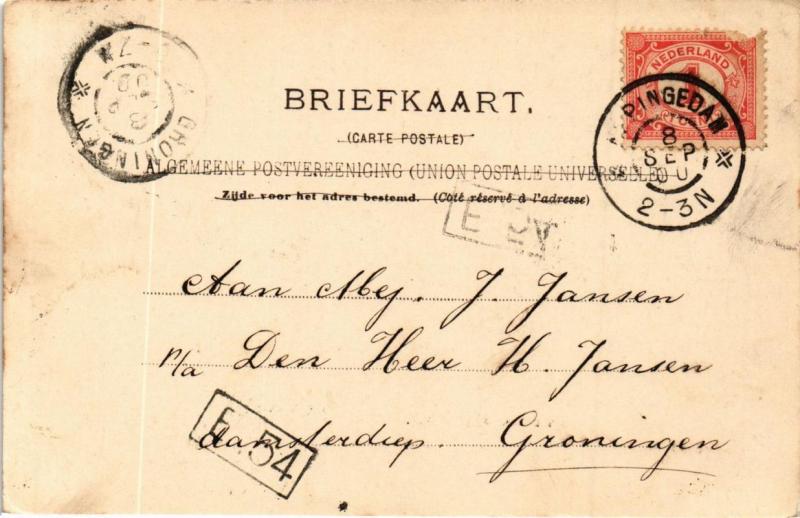 BRIEFKAART.
(CARTE POSTALE)
ALGEMEENE POSTVEREENIGING (UNION POSTALE UNIVERSELLE)
Zijde voor het adres bestemd. (Côté réservé à l'adresse)
NEDERLAND
PINGEDAM
8
SEP
00
2-3N
GRONINGEN
Aan Mej. J. Jansen
p/a Den Heer H. Jansen
Damsterdiep. Groningen
E 34